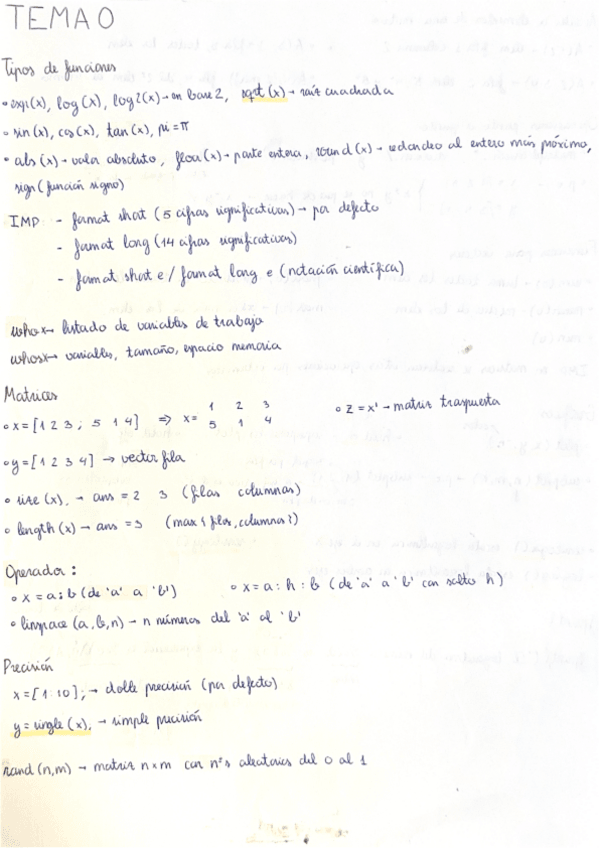 TEMA 0
Tipos de funciones
• exp(x), log(x), log2(x) → en base 2, sqrt(x) → raíz cuadrada
• sin(x), cos(x), tan(x), pi = π
• abs(x) → valor absoluto, floor(x) → parte entera, round(x) → redondeo al entero más próximo,
sign (función signo)
IMP - format short (5 cifras significativas) → por defecto
- format long (14 cifras significativas)
- format short e / format long e (notación científica)
who → listado de variables de trabajo
whos → variables, tamaño, espacio memoria
Matrices
• x = [1 2 3 ; 5 1 4] ⇒ x = 1 2 3 • z = x' → matriz traspuesta
5 1 4
• y = [1 2 3 4] → vector fila
• size (x), → ans = 2 3 (filas columnas)
• length (x) → ans = 3 (max {filas, columnas})
Operador :
• x = a:b (de 'a' a 'b') • x = a : h : b (de 'a' a 'b' con salto h)
• linspace (a, b, n) → n números del 'a' al 'b'
Precisión
x = [1:10]; → doble precisión (por defecto)
y = single (x); → simple precisión
rand (n,m) → matriz n x m con nºs aleatorios del 0 al 1